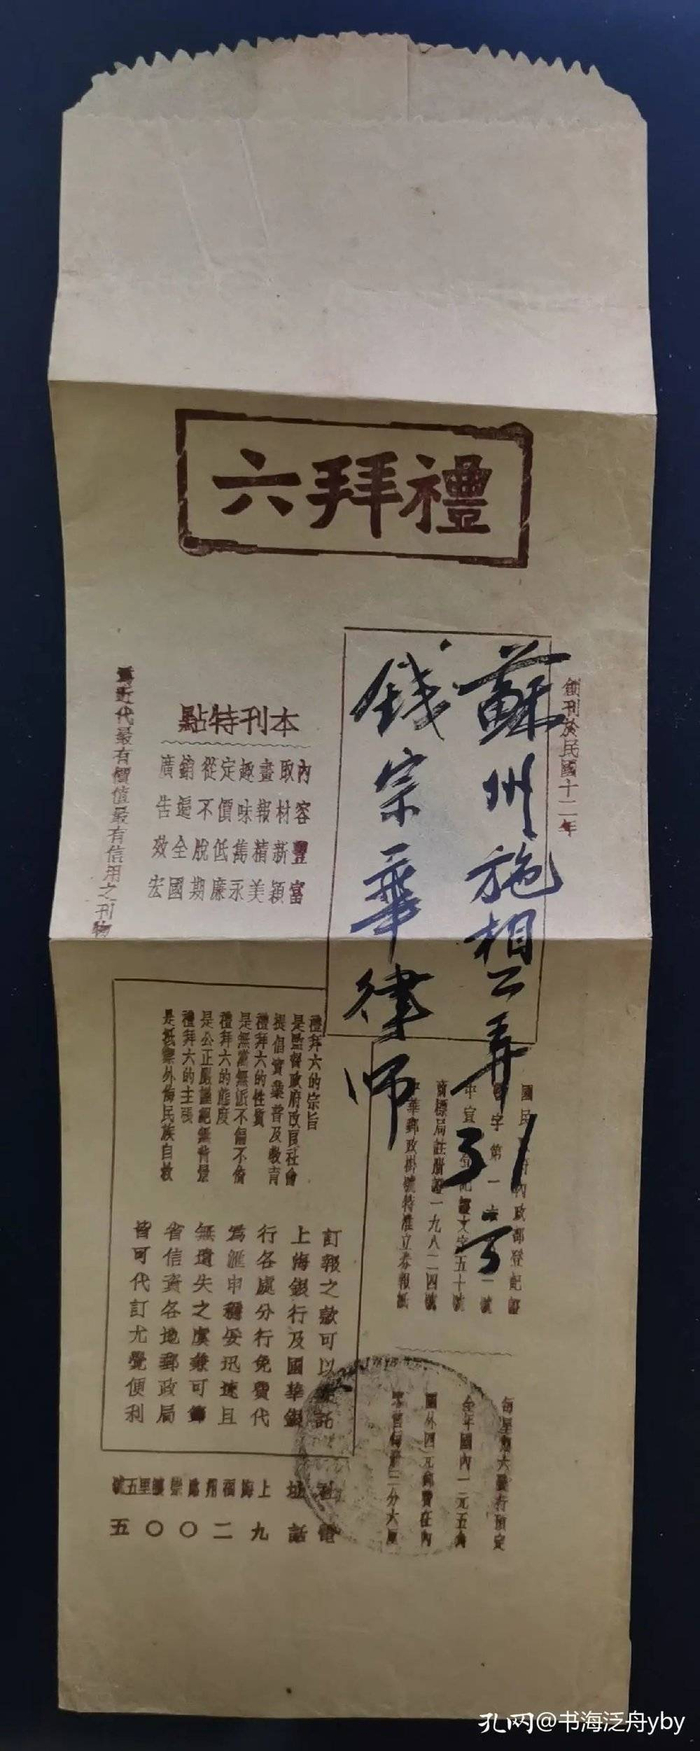 禮拜六
創刊於民國十二年
蘇州施相公弄31号
錢宗華律师
本刊特點
內容豐富
取材新穎
畫報精美
趣味雋永
定價低廉
從不脫期
銷遍全國
廣告效宏
為近代最有價值最有信用之刊物
禮拜六的宗旨
是監督政府改良社會
提倡實業普及教育
禮拜六的性質
是無黨無派不偏不倚
禮拜六的態度
是公正嚴謹絕無背景
禮拜六的主張
是抵禦外侮民族自救
訂報之款可以委託
上海銀行及國華銀
行各處分行免費代
為匯申穩妥迅速且
無遺失之虞兼可節
省信資各地郵政局
皆可代訂尤覺便利
商標局註冊證一九八二四號
中華郵政掛號特准立券報紙
全年國內一元五角
國外四元郵費在內
社址 上海福州路崇讓里五號
電話 九二〇〇五
孔网@书海泛舟yby